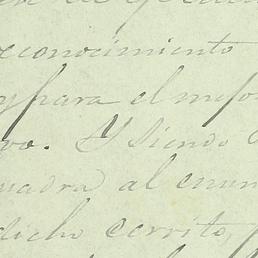 econocimiento
y para el mejo
vo. Y siendo
uadra al enun
dicho cerrito,